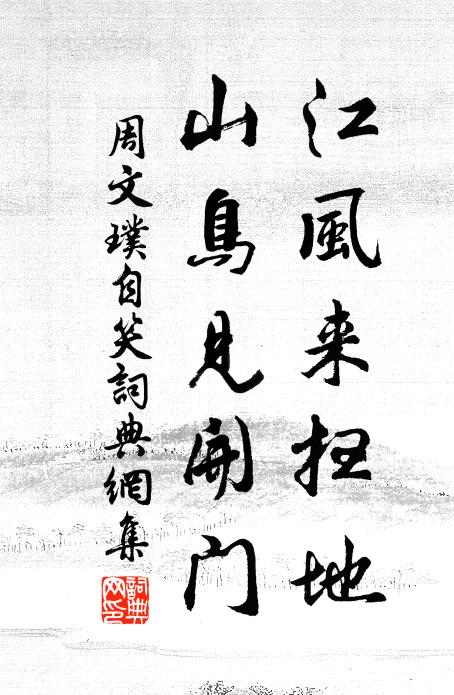 江風来扫地
山鳥見開门
周文璞自笑詞典網集
詞典网印